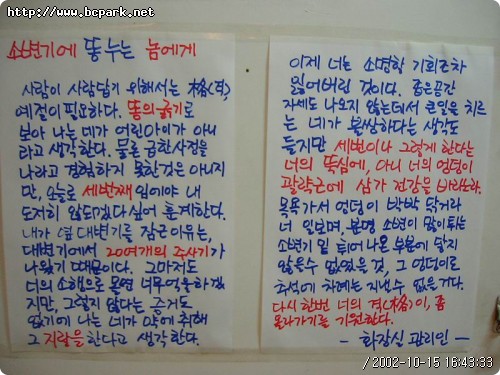 http://www.bcpark.net
소변기에 똥누는 놈에게
사람이 사람답기 위해서는 格(격),
예절이 필요하다. 똥의 굵기로
보아 나는 네가 어린아이가 아니
라고 생각한다. 물론 급한사정을
나라고 경험하지 못한것은 아니지
만, 오늘로 세번째 일이야 내
도저히 않되겠다싶어 훈계한다.
내가 옆 대변기를 잠근 이유는,
대변기에서 20여개의 주사기가
나왔기 때문이다. 그마저도
너의 소행으로 몰면 너무억울하겠
지만, 그렇지 않다는 증거도
없기에 나는 네가 약에 취해
그 지랄을 한다고 생각한다.
이제 너는 소명할 기회조차
잃어버린 것이다. 좁은공간
자세도 나오지 않는데서 큰일을 치르
는 네가 불쌍하다는 생각도
들지만 세번이나 그렇게 한다는
너의 뚝심에, 아니 너의 엉덩이
괄약근에 삼가 전감을 바라노라.
목욕가서 엉덩이 박박 닦거라
너 임보며, 분명 소변이 많이튀는
소변기 밑 튀어나온 부분에 닿지
않을수 없었을 것, 그 엉덩이로
추석에 차례는 지낼수 없을거다.
다시 한번 너의 격(格)이, 좀
올라가기를 기원한다.
- 화장실 관리인 -
/2002-10-15 16:43:33